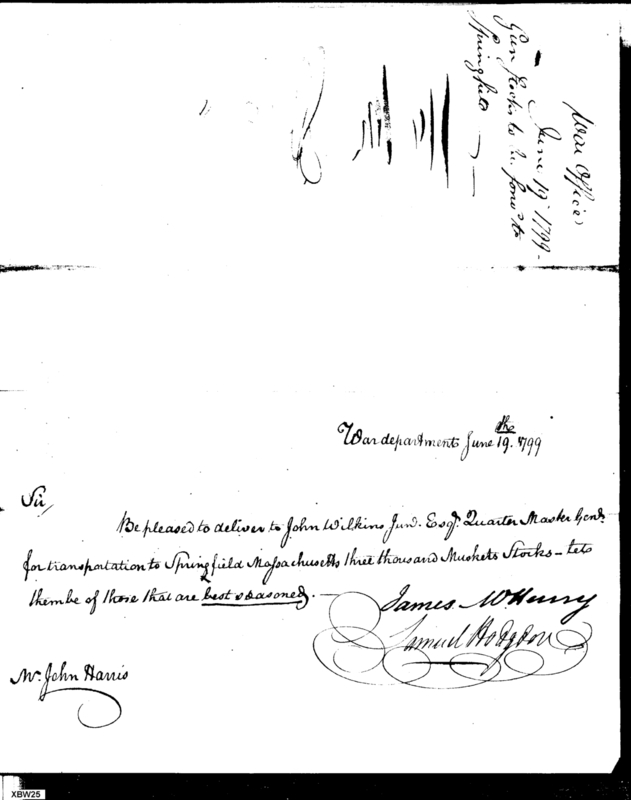 War Office
June 19th 1799 -
Gun Stocks to be forwd to
Springfield
War department June 19th. 1799
Sir,
Be pleased to deliver to John Wilkins Junr. Esqr. Quarter Master Genl.
for transportation to Springfield Massachusetts three thousand Muskets Stocks - lets
them be of those that are best seasoned. -
James McHenry
Samuel Hodgdon
Mr. John Harris
XBW25